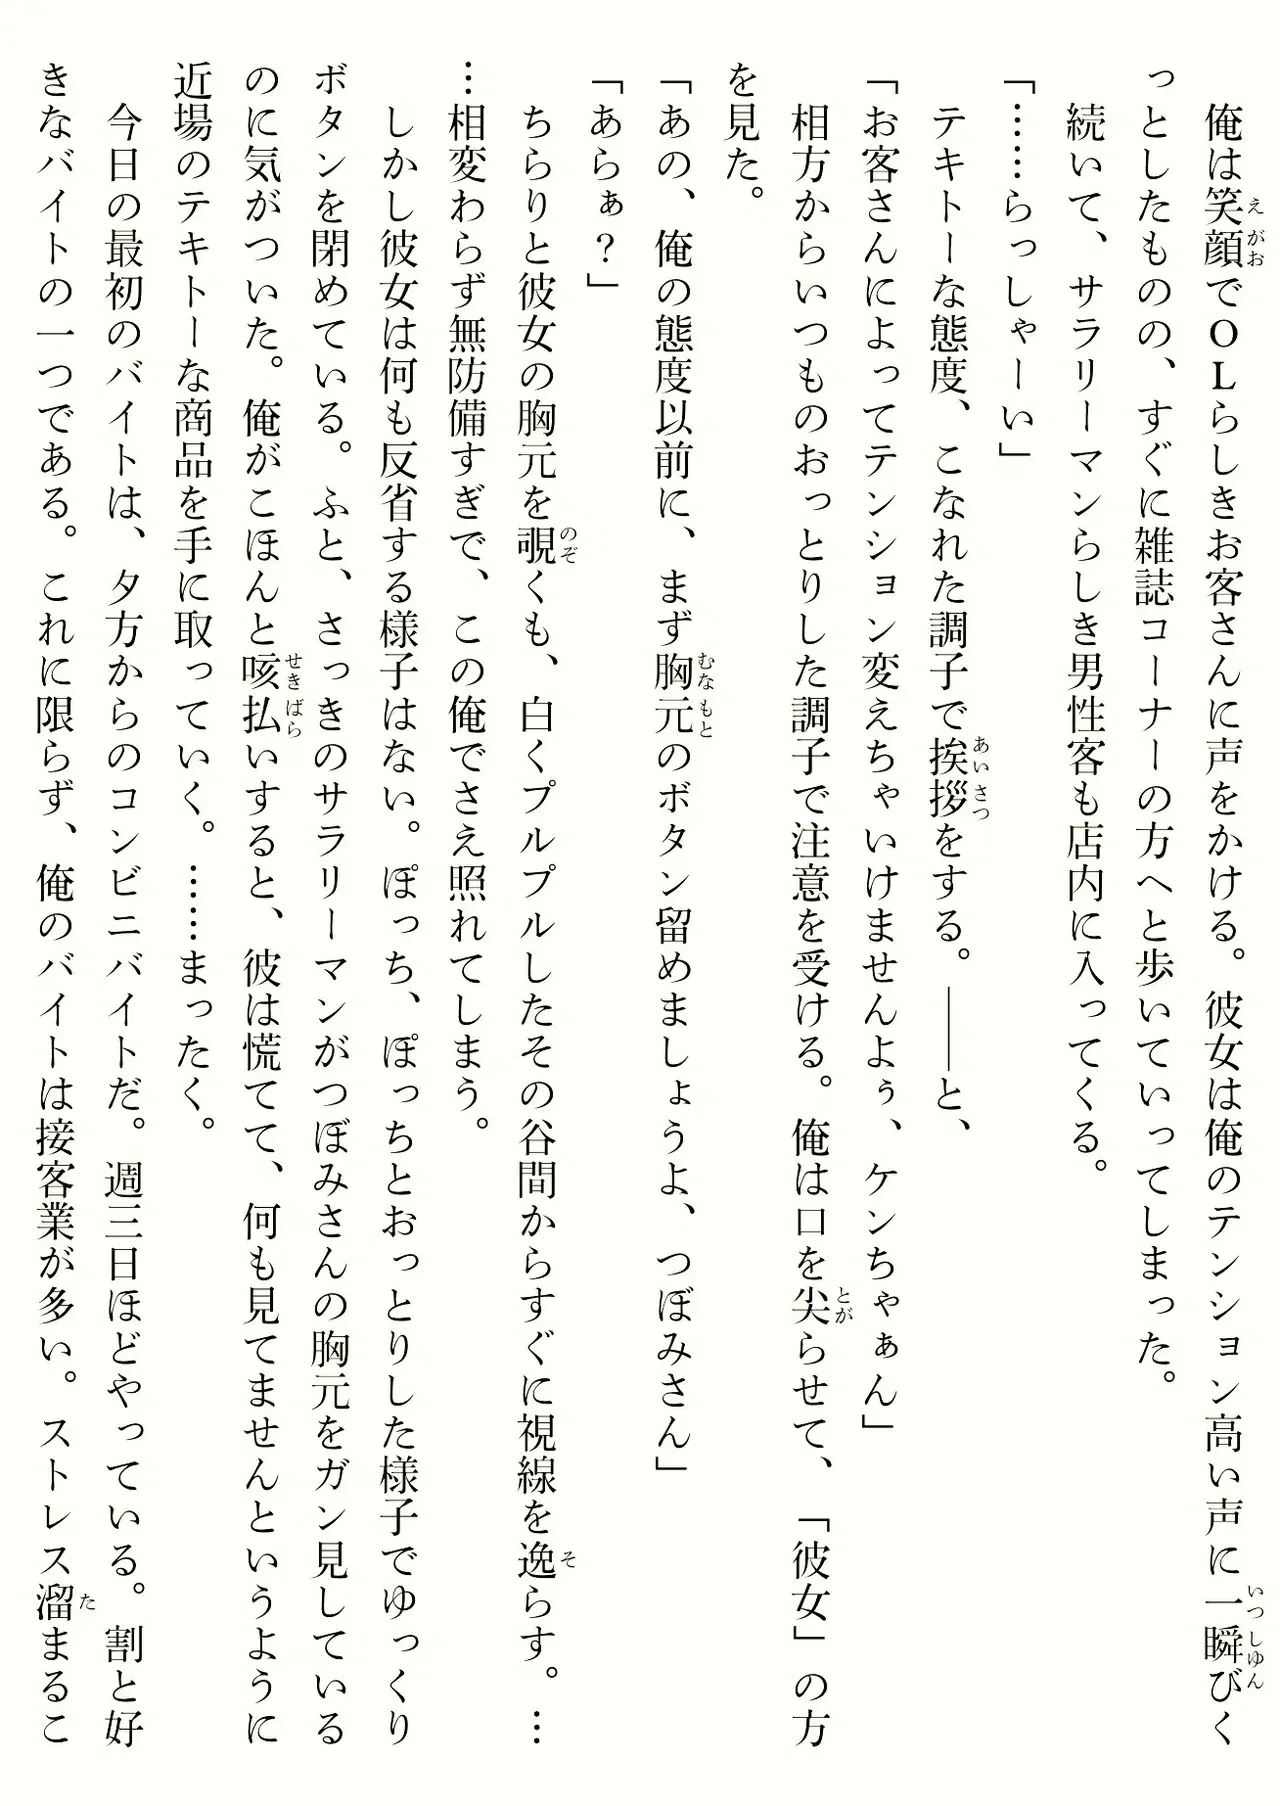 俺は笑顔でＯＬらしきお客さんに声をかける。彼女は俺のテンション高い声に一瞬びく
っとしたものの、すぐに雑誌コーナーの方へと歩いていってしまった。
続いて、サラリーマンらしき男性客も店内に入ってくる。
「……らっしゃーい」
テキトーな態度、こなれた調子で挨拶をする。――と、
「お客さんによってテンション変えちゃいけませんよぅ、ケンちゃぁん」
相方からいつものおっとりした調子で注意を受ける。俺は口を尖らせて、「彼女」の方
を見た。
「あの、俺の態度以前に、まず胸元のボタン留めましょうよ、つぼみさん」
「あらぁ？」
ちらりと彼女の胸元を覗くも、白くプルプルしたその谷間からすぐに視線を逸らす。…
…相変わらず無防備すぎで、この俺でさえ照れてしまう。
しかし彼女は何も反省する様子はない。ぽっち、ぽっちとおっとりした様子でゆっくり
ボタンを閉めている。ふと、さっきのサラリーマンがつぼみさんの胸元をガン見している
のに気がついた。俺がこほんと咳払いすると、彼は慌てて、何も見てませんというように
近場のテキトーな商品を手に取っていく。……まったく。
今日の最初のバイトは、夕方からのコンビニバイトだ。週三日ほどやっている。割と好
きなバイトの一つである。これに限らず、俺のバイトは接客業が多い。ストレス溜まるこ